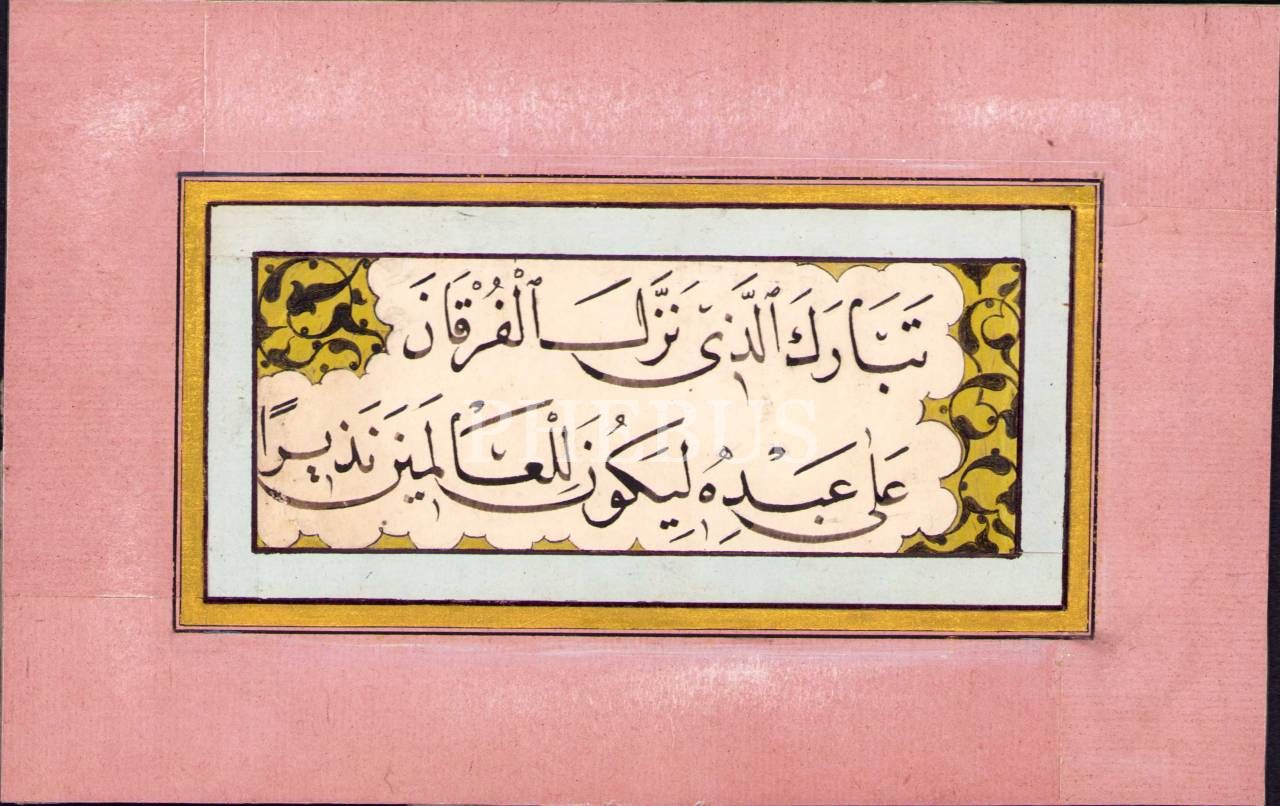 تَبَّارَكَ ٱلَّذٖى نَزَّلَ ٱلْفُرْقَانَ
عَلٰى عَبْدِهٖ لِيَكُونَ لِلْعَالَمٖينَ نَذٖيرًا
PHEBUS